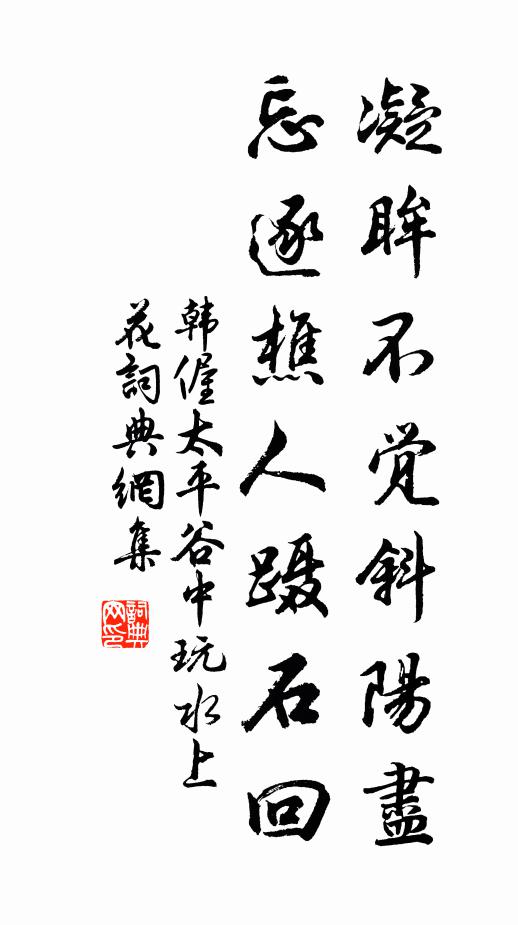 凝眸不觉斜陽盡
忘逐樵人蹑石回
韩偓太平谷中玩水上
花詞典網集
詞典
网印